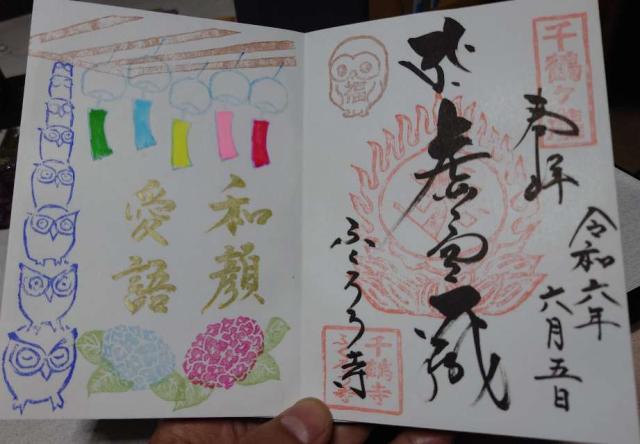 奉拝
令和六年
六月五日
虚空蔵
ふくろう寺
福
千鶴寺
和顔
愛語